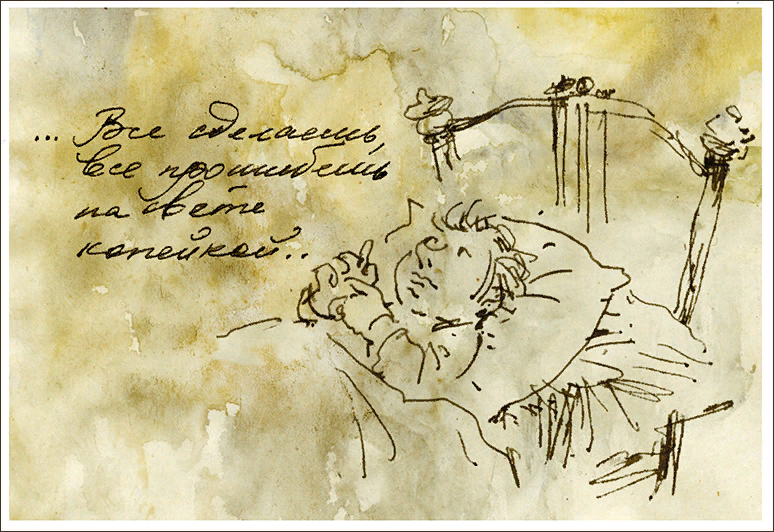 ... Все сделаешь,
все прошибешь
на свете
копейкой..